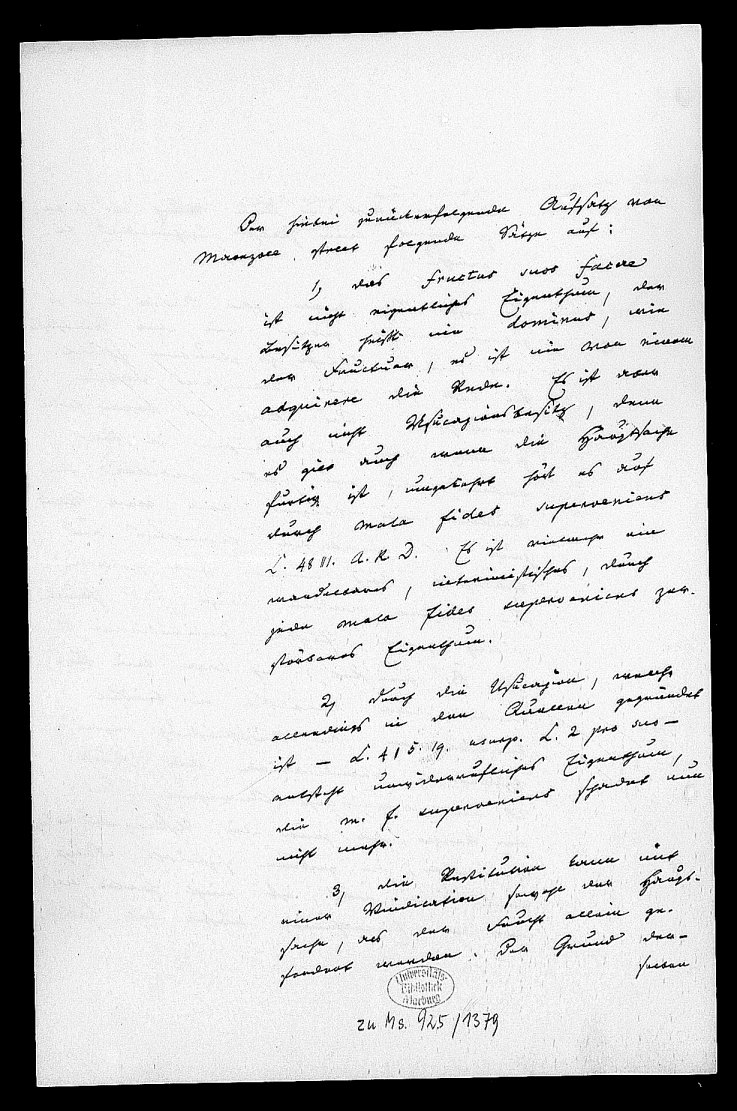 Der hierbei zurückerfolgende Aufsatz von
Marezoll stellt folgende Sätze auf:
1, das fructus suos facere
ist nicht eigentliches Eigenthum, der
Besitzer heißt nie dominus, wie
der Fructuar, es ist nie von einem
adquirere die Rede. Es ist aber
auch nicht Usucapionsbesitz, denn
es gilt auch wenn die Hauptsache
furtiv ist, umgekehrt hört es auf
durch mala fides superveniens
L. 48 §1. A. R. D. Es ist vielmehr ein
wandelbares, interimistisches, durch
jede mala fides superveniens zer-
störbares Eigenthum.
2, durch die Usucapion, welche
allerdings in den Quellen gegründet
ist – L. 4 § 5. 19. usurp. L. 2 pro suo –
entsteht unwiderrufliches Eigenthum,
die m. f. superveniens schadet nun
nicht mehr.
3, die Restitution kann mit
einer Vindication sowohl der Haupt-
sache, als der Frucht allein ge-
fordert werden. Der Grund der-
selben
Universitäts-
Bibliothek
Marburg
zu Ms. 925/1379